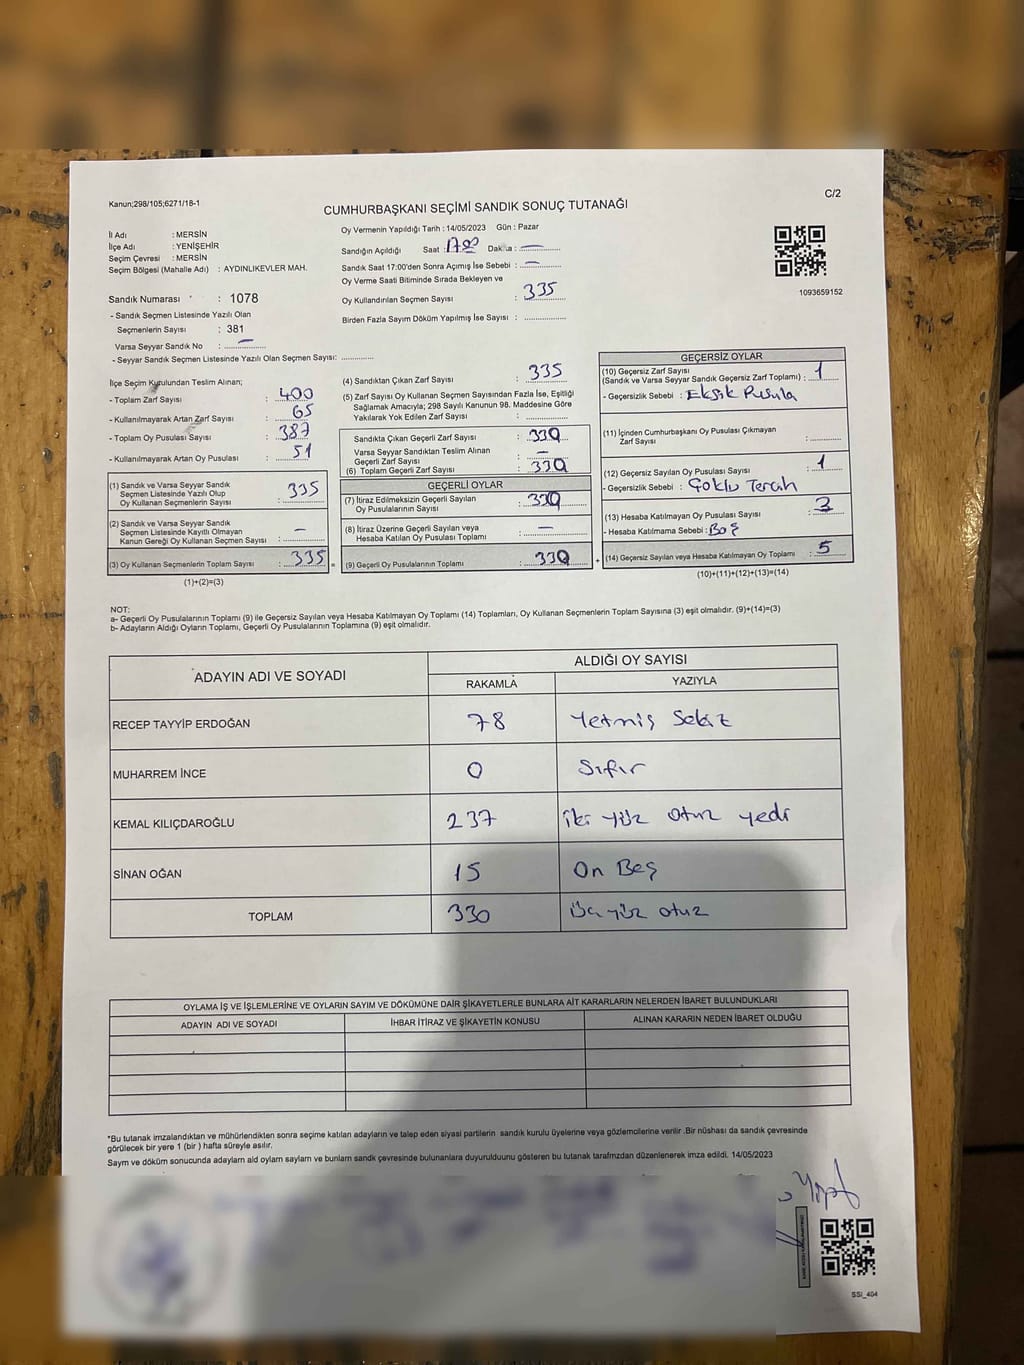 Kanun;298/105;6271/18-1
C/2
CUMHURBAŞKANI SEÇİMİ SANDIK SONUÇ TUTANAĞI
İl Adı : MERSİN
İlçe Adı : YENİŞEHİR
Seçim Çevresi : MERSİN
Seçim Bölgesi (Mahalle Adı) : AYDINLIKEVLER MAH.
Sandık Numarası : 1078
- Sandık Seçmen Listesinde Yazılı Olan
Seçmenlerin Sayısı : 381
Varsa Seyyar Sandık No : —
- Seyyar Sandık Seçmen Listesinde Yazılı Olan Seçmen Sayısı: ............
Oy Vermenin Yapıldığı Tarih : 14/05/2023 Gün : Pazar
Sandığın Açıldığı Saat : 17.00 Dakika : —
Sandık Saat 17:00'den Sonra Açımış İse Sebebi : —
Oy Verme Saati Bitiminde Sırada Bekleyen ve
Oy Kullandırılan Seçmen Sayısı : 335
Birden Fazla Sayım Döküm Yapılmış İse Sayısı : ............
1093659152
İlçe Seçim Kurulundan Teslim Alınan;
- Toplam Zarf Sayısı : 400
- Kullanılmayarak Artan Zarf Sayısı : 65
- Toplam Oy Pusulası Sayısı : 387
- Kullanılmayarak Artan Oy Pusulası : 51
(1) Sandık ve Varsa Seyyar Sandık
Seçmen Listesinde Yazılı Olup
Oy Kullanan Seçmenlerin Sayısı : 335
(2) Sandık ve Varsa Seyyar Sandık
Seçmen Listesinde Kayıtlı Olmayan
Kanun Gereği Oy Kullanan Seçmen Sayısı : —
(3) Oy Kullanan Seçmenlerin Toplam Sayısı : 335 =
(1)+(2)=(3)
(4) Sandıktan Çıkan Zarf Sayısı : 335
(5) Zarf Sayısı Oy Kullanan Seçmen Sayısından Fazla İse, Eşitliği
Sağlamak Amacıyla; 298 Sayılı Kanunun 98. Maddesine Göre
Yakılarak Yok Edilen Zarf Sayısı : ............
Sandıkta Çıkan Geçerli Zarf Sayısı : 330
Varsa Seyyar Sandıktan Teslim Alınan
Geçerli Zarf Sayısı : —
(6) Toplam Geçerli Zarf Sayısı : 330
GEÇERLİ OYLAR
(7) İtiraz Edilmeksizin Geçerli Sayılan
Oy Pusulalarının Sayısı : 330
(8) İtiraz Üzerine Geçerli Sayılan veya
Hesaba Katılan Oy Pusulası Toplamı : —
(9) Geçerli Oy Pusulalarının Toplamı : 330 +
GEÇERSİZ OYLAR
(10) Geçersiz Zarf Sayısı
(Sandık ve Varsa Seyyar Sandık Geçersiz Zarf Toplamı) : 1
- Geçersizlik Sebebi : Eksik Pusula
(11) İçinden Cumhurbaşkanı Oy Pusulası Çıkmayan
Zarf Sayısı : ............
(12) Geçersiz Sayılan Oy Pusulası Sayısı : 1
- Geçersizlik Sebebi : Çoklu Tercih
(13) Hesaba Katılmayan Oy Pusulası Sayısı : 3
- Hesaba Katılmama Sebebi : Boş
(14) Geçersiz Sayılan veya Hesaba Katılmayan Oy Toplamı : 5
(10)+(11)+(12)+(13)=(14)
NOT:
a- Geçerli Oy Pusulalarının Toplamı (9) ile Geçersiz Sayılan veya Hesaba Katılmayan Oy Toplamı (14) Toplamları, Oy Kullanan Seçmenlerin Toplam Sayısına (3) eşit olmalıdır. (9)+(14)=(3)
b- Adayların Aldığı Oyların Toplamı, Geçerli Oy Pusulalarının Toplamına (9) eşit olmalıdır.
ADAYIN ADI VE SOYADI
ALDIĞI OY SAYISI
RAKAMLA YAZIYLA
RECEP TAYYİP ERDOĞAN 78 Yetmiş Sekiz
MUHARREM İNCE 0 Sıfır
KEMAL KILIÇDAROĞLU 237 iki yüz otuz yedi
SİNAN OĞAN 15 On Beş
TOPLAM 330 Üç yüz otuz
OYLAMA İŞ VE İŞLEMLERİNE VE OYLARIN SAYIM VE DÖKÜMÜNE DAİR ŞİKAYETLERLE BUNLARA AİT KARARLARIN NELERDEN İBARET BULUNDUKLARI
ADAYIN ADI VE SOYADI İHBAR İTİRAZ VE ŞİKAYETİN KONUSU ALINAN KARARIN NEDEN İBARET OLDUĞU
*Bu tutanak imzalandıktan ve mühürlendikten sonra seçime katılan adayların ve talep eden siyasi partilerin sandık kurulu üyelerine veya gözlemcilerine verilir .Bir nüshası da sandık çevresinde
görülecek bir yere 1 (bir ) hafta süreyle asılır.
Sayım ve döküm sonucunda adayların ald oyların sayların ve bunların sandk çevresinde bulunanlara duyurulduunu gösteren bu tutanak tarafmzdan düzenlenerek imza edildi. 14/05/2023
SSI_404